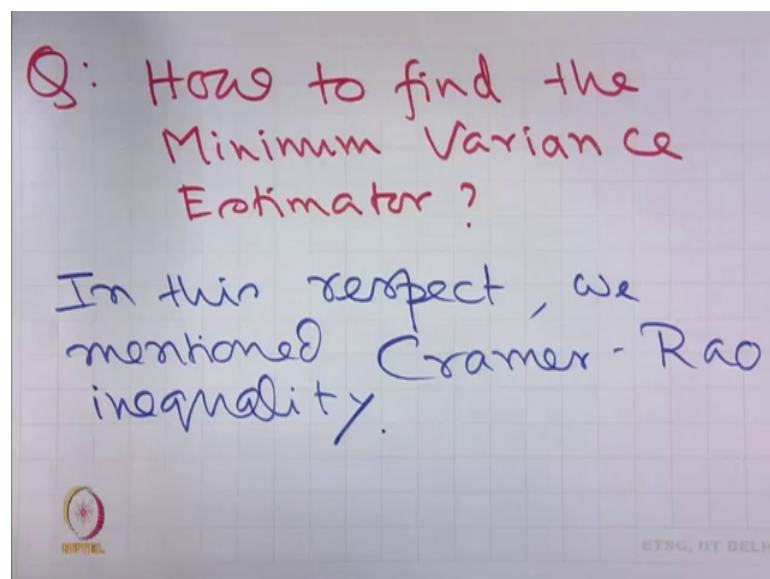 Q: How to find the
Minimum Variance
Estimator?
In this respect, we
mentioned Cramer-Rao
inequality.
NPTEL
ETSC, IIT DELHI